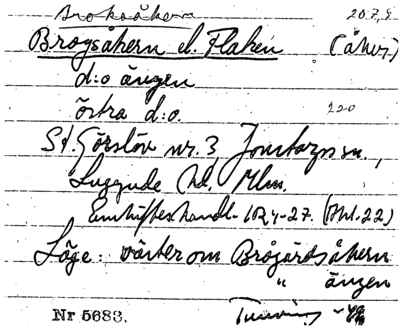 broksåkern 20.7.9.
Brogsåkern el. Flaken (åker)
d:o ängen
östra d:o. 220
St. Görslöv nr. 3 Jonstorps sn.,
Luggude hd, Mlm.
Enskifteshandl. 1824-27. (Akt. 22)
Läge: väster om Brogårdsåkern
" ängen
Nr 5683.